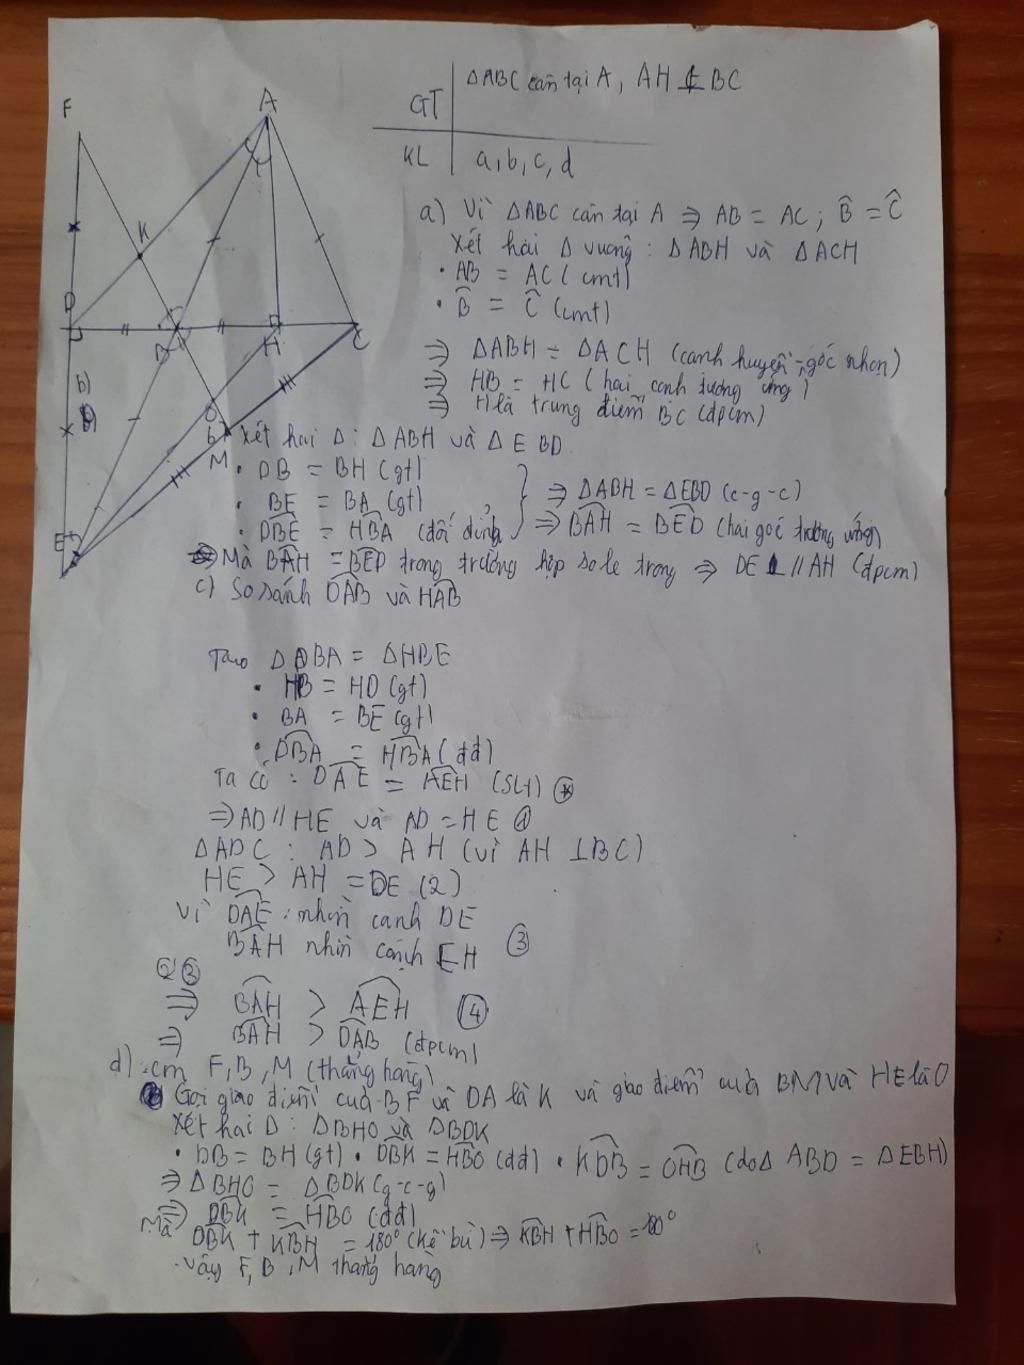 GT
ΔABC cân tại A, AH ⊥ BC
KL
a, b, c, d
F
A
K
D
B
H
C
O
M
E
a) Vì ΔABC cân tại A ⇒ AB = AC ; B̂ = Ĉ
Xét hai Δ vuông : ΔABH và ΔACH
· AB = AC (cmt)
· B̂ = Ĉ (cmt)
⇒ ΔABH = ΔACH (cạnh huyền - góc nhọn)
⇒ HB = HC (hai cạnh tương ứng)
⇒ H là trung điểm BC (đpcm)
b)
Xét hai Δ : ΔABH và ΔEBD
· DB = BH (gt)
· BE = BA (gt)
· DBE = HBA (đối đỉnh)
⇒ ΔABH = ΔEBD (c-g-c)
⇒ BAH = BED (hai góc tương ứng)
Mà BAH = BED trong trường hợp so le trong ⇒ DE // AH (đpcm)
c) So sánh DAB và HAB
ΔDBA = ΔHBE
· HB = HD (gt)
· BA = BE (gt)
· DBA = HBA (đđ)
Ta có : DAE = AEH (SLT) *
⇒ AD // HE và AD = HE 1
ΔADC : AD > AH (vì AH ⊥ BC)
HE > AH = DE (2)
Vì DAE nhìn cạnh DE
BAH nhìn cạnh EH 3
2 3
⇒ BAH > AEH 4
⇒ BAH > DAB (đpcm)
d) cm F, B, M (thẳng hàng)
Gọi giao điểm của BF và DA là K và giao điểm của BM và HE là O
Xét hai Δ : ΔBHO và ΔBDK
· DB = BH (gt) · DBK = HBO (đđ) · KDB = OHB (do Δ ABD = ΔEBH)
⇒ ΔBHO = ΔBDK (g-c-g)
⇒ DBK = HBO (đđ)
Mà DBK + KBH = 180° (kề bù) ⇒ KBH + HBO = 180°
Vậy F, B, M thẳng hàng